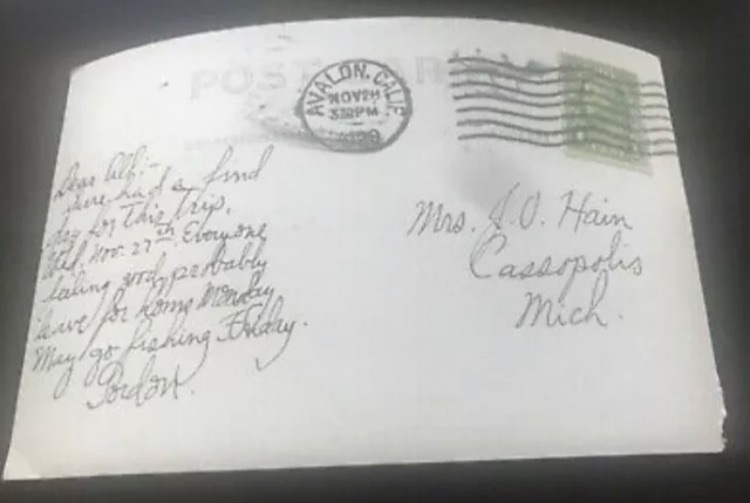 POST CARD
AVALON, CALIF.
NOV 28
3 30 PM
1929
Dear All:-
Sure had a fine
day for this trip.
Wed, Nov. 27th. Everyone
feeling good, probably
leave for home Monday
May go fishing Friday.
Gordon.
Mrs. J. O. Hain
Cassopolis
Mich.